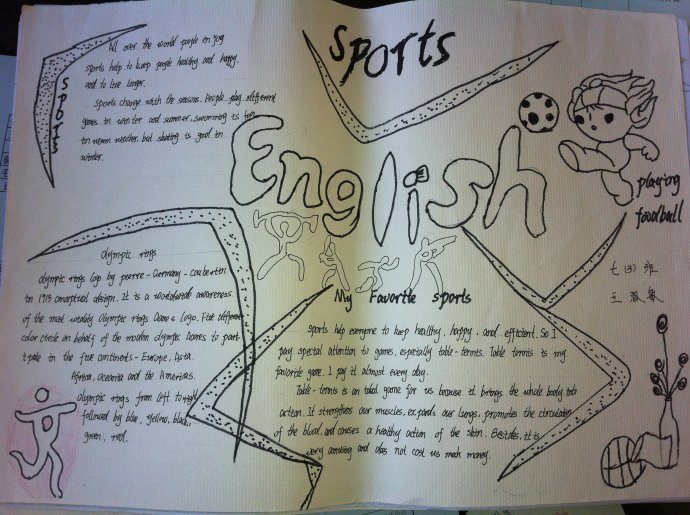 SPORTS
All over the world people enjoy
sports help to keep people healthy and happy,
and to live longer.
Sports change with the seasons. People play different
games in winter and summer, swimming is fun
in warm weather, but skating is good in
winter.
SPORTS
English
playing
foodball
七(3)班
王
Olympic rings
Olympic rings logo by pierre - Germany - couberten
in 1913 conceptual design. It is a worldwide awareness
of the most widely Olympic rings Games logo. Five different
color circle on behalf of the modern olympic Games to parti
cipate in the five continents - Europe, Asia.
Africa, Oceania and the Americas.
Olympic rings from left to right
followed by blue, yellow, black,
green, red.
My Favorite sports
Sports help everyone to keep healthy, happy, and efficient. So I
pay special attention to games, espelally table-tennis. Table tennis is my
favorite game. I pay it almost every day.
Table-tennis is an ideal game for us because it brings the whole body into
action. It strengthens our muscles, expands our lungs, promotes the circulation
of the blood, and causes a healthy action of the skin. Besides, it is
very amusing and does not cost us much money.